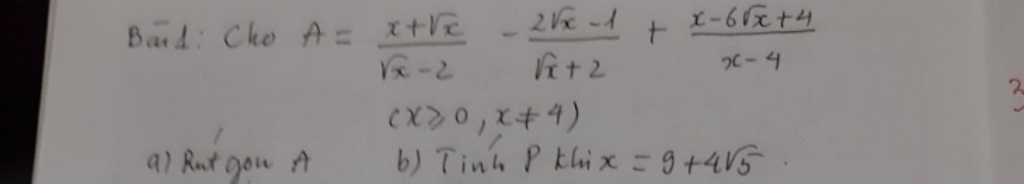 Bài 1: Cho A = (x+√x)/(√x-2) - (2√x-1)/(√x+2) + (x-6√x+4)/(x-4)
(x≥0, x≠4)
a) Rút gọn A b) Tính P khi x = 9+4√5.
3